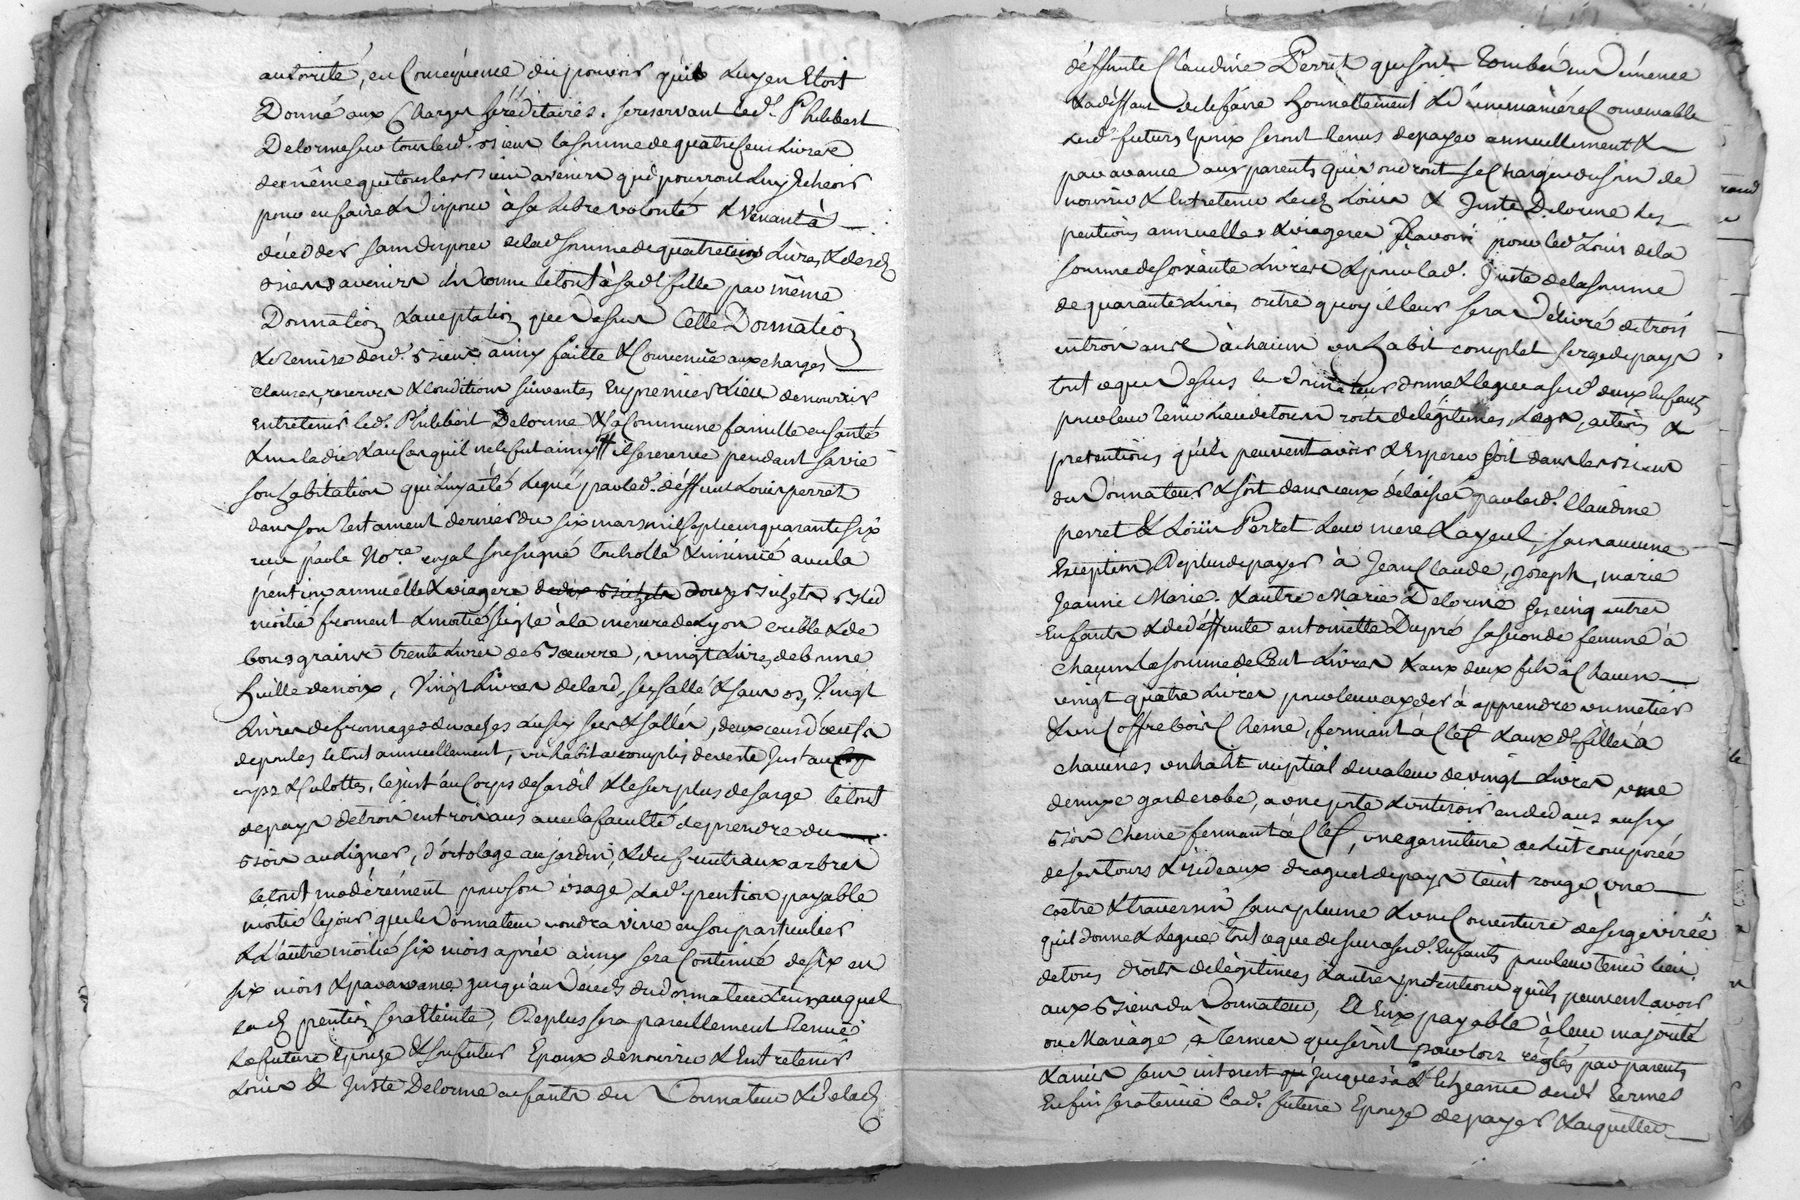 autorité, en Consequence du pouvoir quil luy en Etoit
Donné aux Charges hereditaires. se reservant led. Philibert
Delorme sur tous lesd. biens la somme de quatre cens Livres
de même que tous les biens avenirs qui pourront luy Echeoir
pour en faire & Disposer à sa Libre volonté & Venant à
déceder sans disposer de lad. somme de quatre cens Livres & desd.
biens avenirs il en donne le tout à sad. fille par même
Donnation & acceptation que dessus Cette Donnation
& Remise desd. biens ainsy faitte & Convenüe aux charges
clauses, reserves & conditions suivantes En premier Lieu de nourrir
entretenir led. Philibert Delorme & sa Commune famille en santé
& maladie & au Cas quil ne le fut ainsy # il se reserve pendant sa vie
son habitation qui luy a été Legué par led. deffunt Louis perret
dans son Testament dernier du six mars mil sept cens quarante six
reçu par le Nore. royal soussigné Controllé & insinué avec la
pention annuelle & viagere de dix bichets douze bichets bled
moitié froment & moitié seigle à la mesure de Lyon criblé & de
bons grains trente Livres de Beurre, vingt Livres de bonne
huille de noix, Vingt Livres de lard sec sallé & sans os, Vingt
Livres de fromages de vaches aussy secs & sallés, deux cens d'oeufs
de poules le tout annuellement, un habit accomplis de veste Justau
corps & Culottes, le just'au Corps de & le surplus de sarge le tout
de pays de trois en trois ans avec la faculté de prendre du
bois au Ligner, d'ortolage au jardin, & des fruits aux arbres
le tout modérément pour son usage Lad. pention payable
moitié le jour que le Donnateur voudra vivre en son particulier
& L'autre moitié six mois après ainsy sera Continüé de six en
six mois & par avance jusqu'au Deceds du donnateur tems auquel
lad. pention sera Eteinte, De plus sera pareillement Tenuë
La future Epouze & son futur Epoux de nourrir & Entretenir
Louis & Juste Delorme enfants du Donnateur & de lad.
déffunte Claudine Perret qui sont Tombés en Démence
& a deffaut de le faire honnettement & d'une maniére Convenable
lesd. futurs Epoux seront Tenus de payer annuellement &
par avance aux parents qui voudront se Charger du soin de
nourrir & Entretenir lesd. Loüis & Juste Delorme les
pentions annuelles & viageres sçavoir pour led. Louis de la
somme de soixante Livres & pour lad. Juste de la somme
de quarante Livres outre quoy il leurs sera Délivré de trois
en trois ans à chacun un habit complet sarge de pays
tout ce que Dessus le Donnateur donne & legue a sesd. deux Enfants
pour leur Tenir Lieu de tous droits de légitimes, Legs, actions &
pretentions quils peuvent avoir & Esperer soit dans les biens
du Donnateur & soit dans ceux délaissés par lesd. Claudine
perret & Loüis Perret Leur mere & ayeul, sans aucune
Exception De plus de payer à Jean Claude, Joseph, marie
Jeanne Marie & autre Marie Delorme ses cinq autres
Enfants & de deffunte antoinette Dupré sa seconde femme à
chacun La somme de Cent Livres & aux deux fils à Chacun
vingt quatre Livres pour leurs ayder à apprendre un métier
& un Coffre bois Chesne, fermant à Clef & aux d. filles à
chacunes un habit nuptial de valeur de vingt Livres, une
demye garderobe, a une porte & un tiroir en dedans aussy
bois chesne fermant à Clef, une garniture de Lit composée
de ses tours & rideaux droguet de pays teint rouge, une
coëtre & traversin sans plume & une Couverture de sarge virée
qu'il donne & Legue tout ce que dessus a sesd. Enfants pour leur tenir lieu
de tous droits de légitimes & autres pretentions quils peuvent avoir
aux biens du Donnateur, Et Eux payable à leur majorité
ou Mariage, & Termes qui seront pour lors réglés par parents
& amis sans interest jusques à l'Echeance desd. Termes
Enfin sera tenüe lad. future Epouze de payer & acquitter